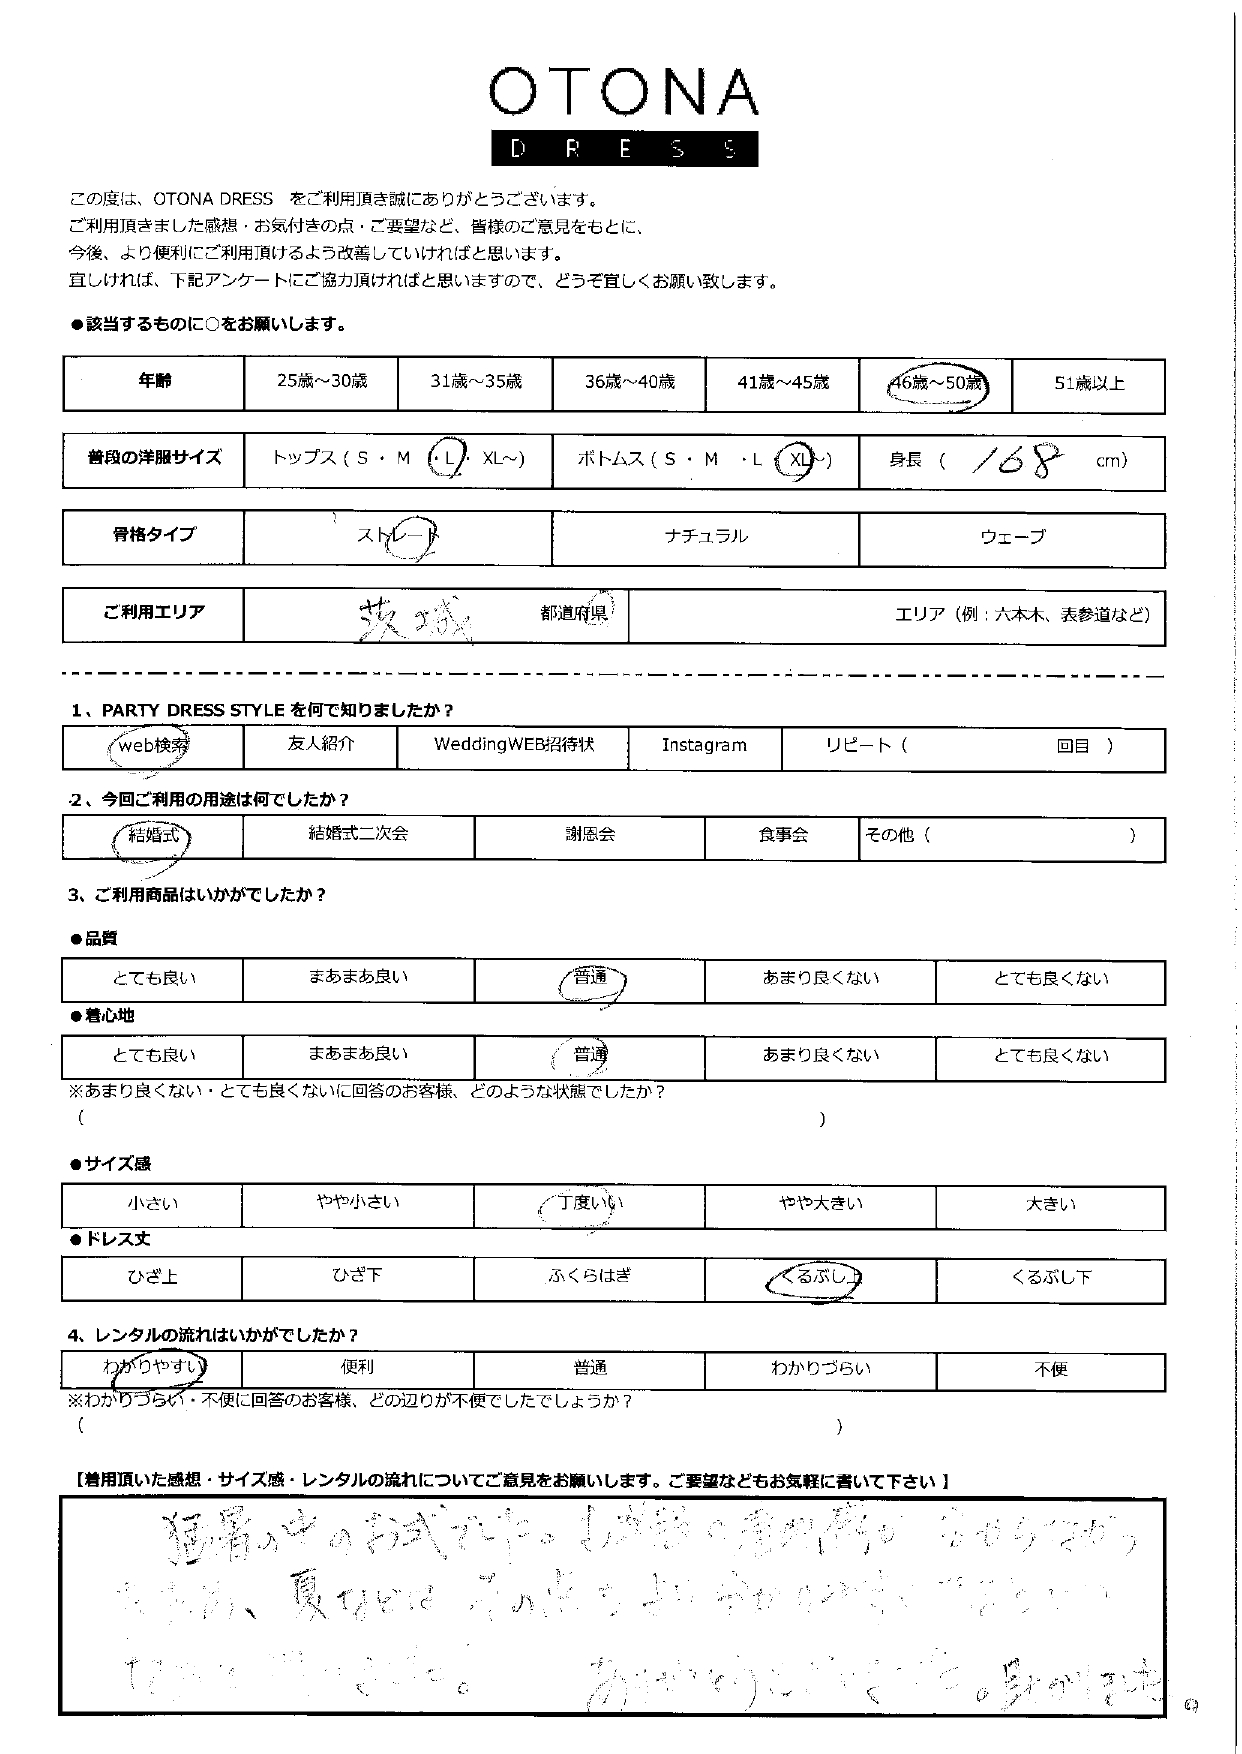 OTONA
DRESS
この度は、OTONA DRESS をご利用頂き誠にありがとうございます。
ご利用頂きました感想・お気付きの点・ご要望など、皆様のご意見をもとに、
今後、より便利にご利用頂けるよう改善していければと思います。
宜しければ、下記アンケートにご協力頂ければと思いますので、どうぞ宜しくお願い致します。
●該当するものに○をお願いします。
年齢 25歳～30歳 31歳～35歳 36歳～40歳 41歳～45歳 46歳～50歳 51歳以上
普段の洋服サイズ トップス ( S ・ M ・L・ XL～) ボトムス ( S ・ M ・L ・XL～) 身長 ( 168 cm)
骨格タイプ ストレート ナチュラル ウェーブ
ご利用エリア 茨城 都道府県 エリア（例：六本木、表参道など）
1、PARTY DRESS STYLE を何で知りましたか？
web検索 友人紹介 WeddingWEB招待状 Instagram リピート ( 回目 )
2、今回ご利用の用途は何でしたか？
結婚式 結婚式二次会 謝恩会 食事会 その他 ( )
3、ご利用商品はいかがでしたか？
●品質
とても良い まあまあ良い 普通 あまり良くない とても良くない
●着心地
とても良い まあまあ良い 普通 あまり良くない とても良くない
※あまり良くない・とても良くないに回答のお客様、どのような状態でしたか？
( )
●サイズ感
小さい やや小さい 丁度いい やや大きい 大きい
●ドレス丈
ひざ上 ひざ下 ふくらはぎ くるぶし上 くるぶし下
4、レンタルの流れはいかがでしたか？
わかりやすい 便利 普通 わかりづらい 不便
※わかりづらい・不便に回答のお客様、どの辺りが不便でしたでしょうか？
( )
【着用頂いた感想・サイズ感・レンタルの流れについてご意見をお願いします。ご要望などもお気軽に書いて下さい 】
猛暑の中のお式でした。 が 分からなかっ
ため、夏などは その点も より分かりやすい
ました。 ありがとうございました。助かりました